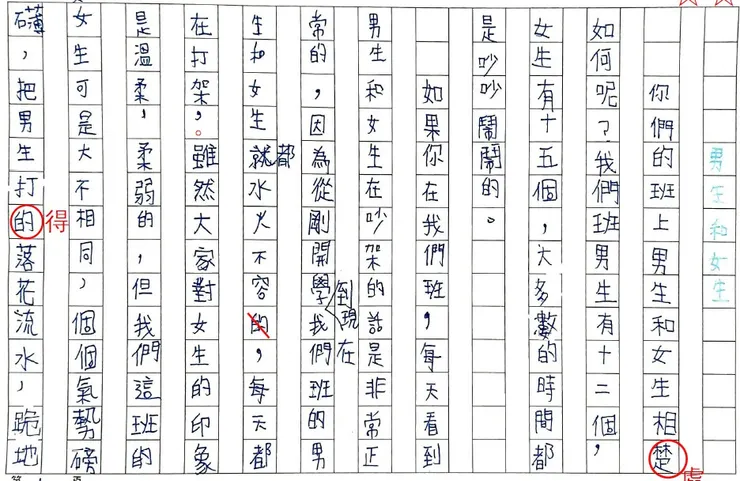 男生和女生
你們的班上男生和女生相楚
處
如何呢？我們班男生有十二個，
女生有十五個，大多數的時間都
是吵吵鬧鬧的。
如果你在我們班，每天看到
男生和女生在吵架的話是非常正
常的，因為從剛開學到現在我們班的男
生和女生就都水火不容的，每天都
在打架，。雖然大家對女生的印象
是溫柔，柔弱的，但我們這班的
女生可是大不相同，個個氣勢磅
礴，把男生打的落花流水，跪地
得